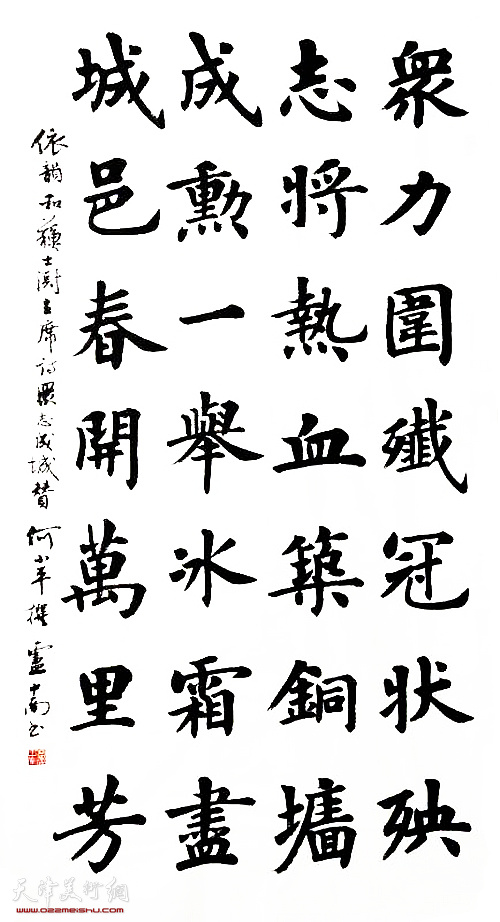 衆力圍殲冠状殃
志將熱血築銅墻
成勲一舉冰霜盡
城邑春開萬里芳
依韻和蘇士澍主席詩衆志成城贊 何小平撰 盧中南书
天津美術網
www.022meishu.com